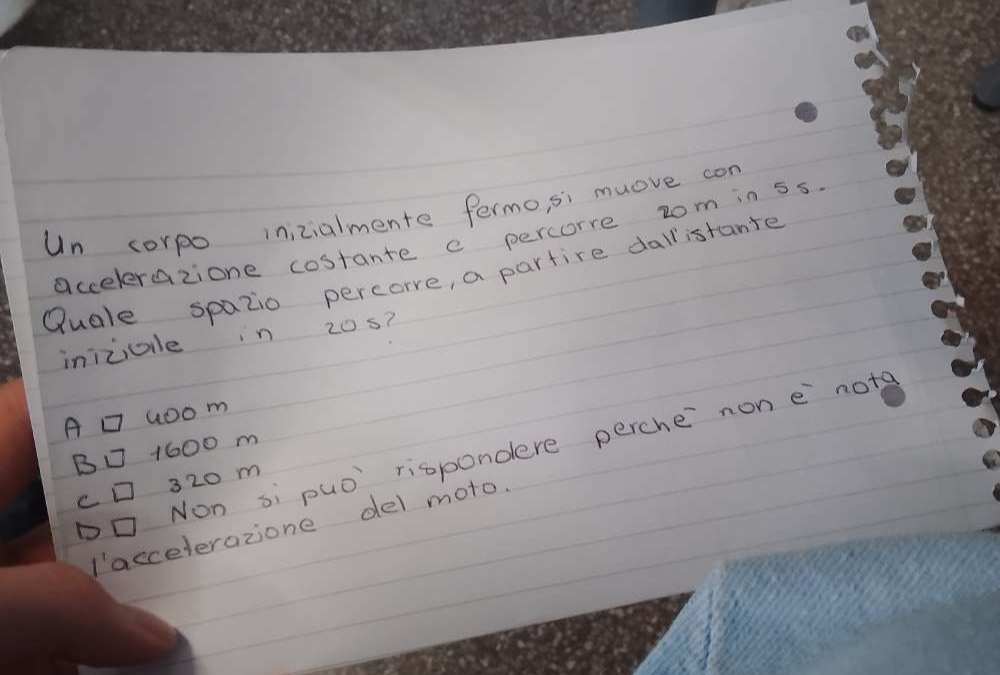 Un corpo inizialmente fermo, si muove con
accelerazione costante e percorre 20 m in 5 s.
Quale spazio percorre, a partire dall'istante
iniziale in 20 s?
A □ 400 m
B □ 1600 m
C □ 320 m
D □ Non si può rispondere perchè non è nota
l'accelerazione del moto.